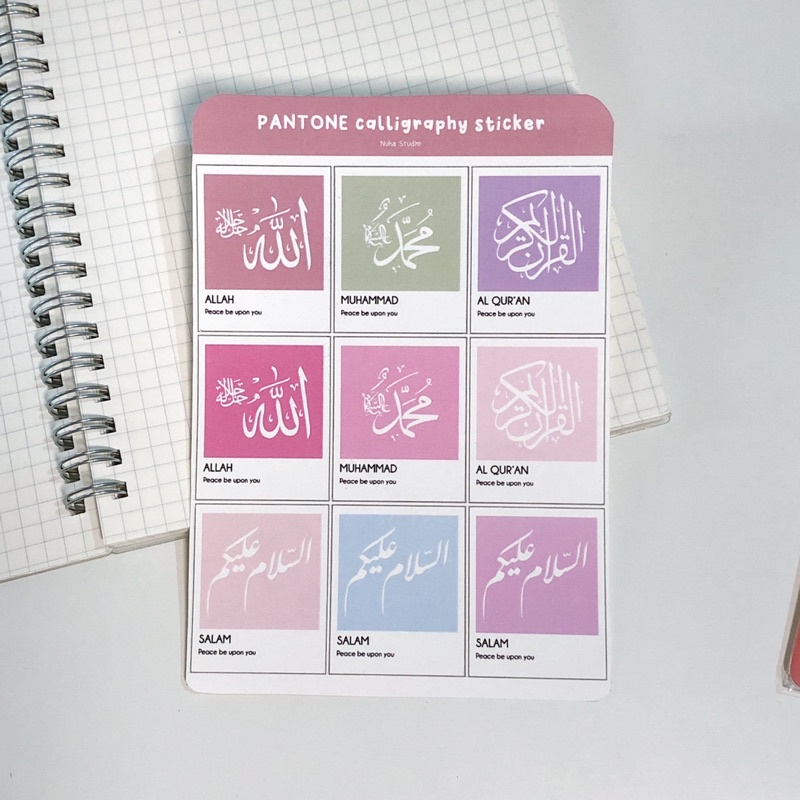 PANTONE calligraphy sticker
Nuha Studio
الله جل جلاله
محمد عليه السلام
القرآن الكريم
ALLAH
MUHAMMAD
AL QUR'AN
Peace be upon you
Peace be upon you
Peace be upon you
الله جل جلاله
محمد عليه السلام
القرآن الكريم
ALLAH
MUHAMMAD
AL QUR'AN
Peace be upon you
Peace be upon you
Peace be upon you
السلام عليكم
السلام عليكم
السلام عليكم
SALAM
SALAM
SALAM
Peace be upon you
Peace be upon you
Peace be upon you